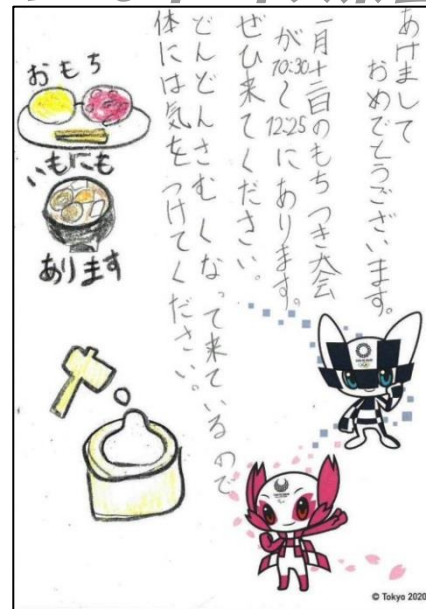 あけまして
おめでとうございます。
一月十二日のもちつき大会
が10:30〜12:25にあります。
ぜひ来てください。
どんどんさむくなって来ているので
体には気をつけてください。
おもち
いもにも
あります
© Tokyo 2020